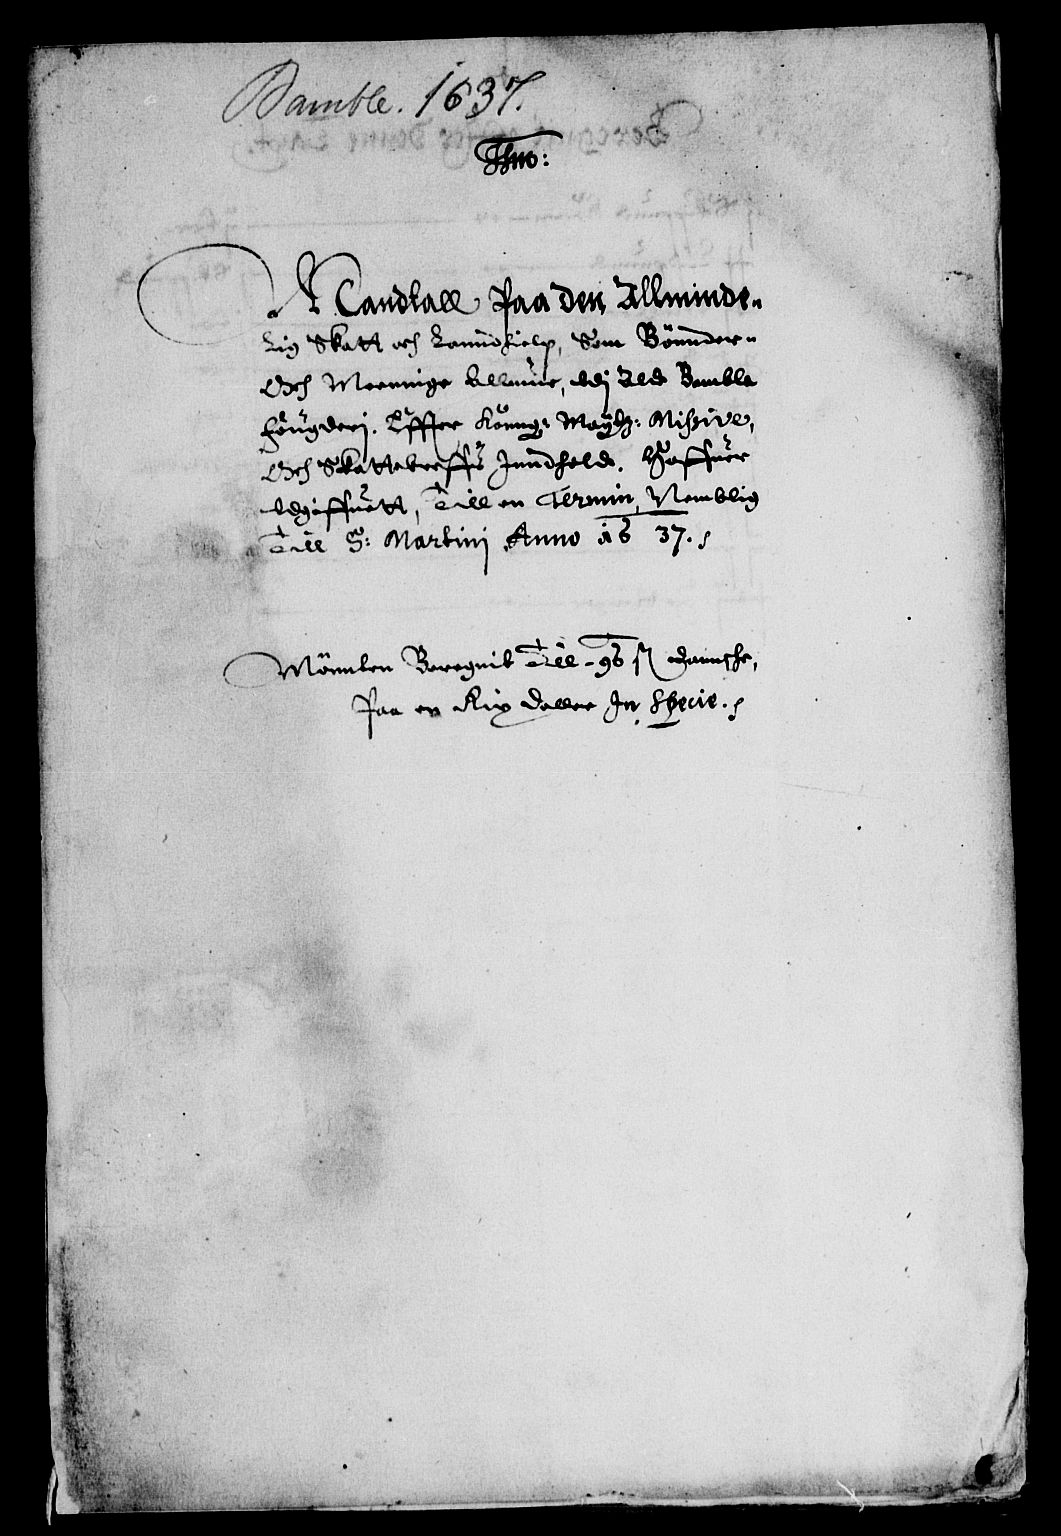 Bamble. 1637.
Jhūo:
Mandtall Paa den Allminde„
Lig Skatt och Lanndhielp, Som Bønnder„
Och Meenninge Allmue, Udj Alde Bamble
fougderj. Effter Konng: Mayttz: Missive,
Och Skattebreffs Inndhold. Haffuer
Udgiffuett, Till en Termin, Nemblig
Till S: Martinj Anno 16 37.
Mønnten Beregnit Till - 96 ß Dannsche,
Paa en Rix Daller In Specie.